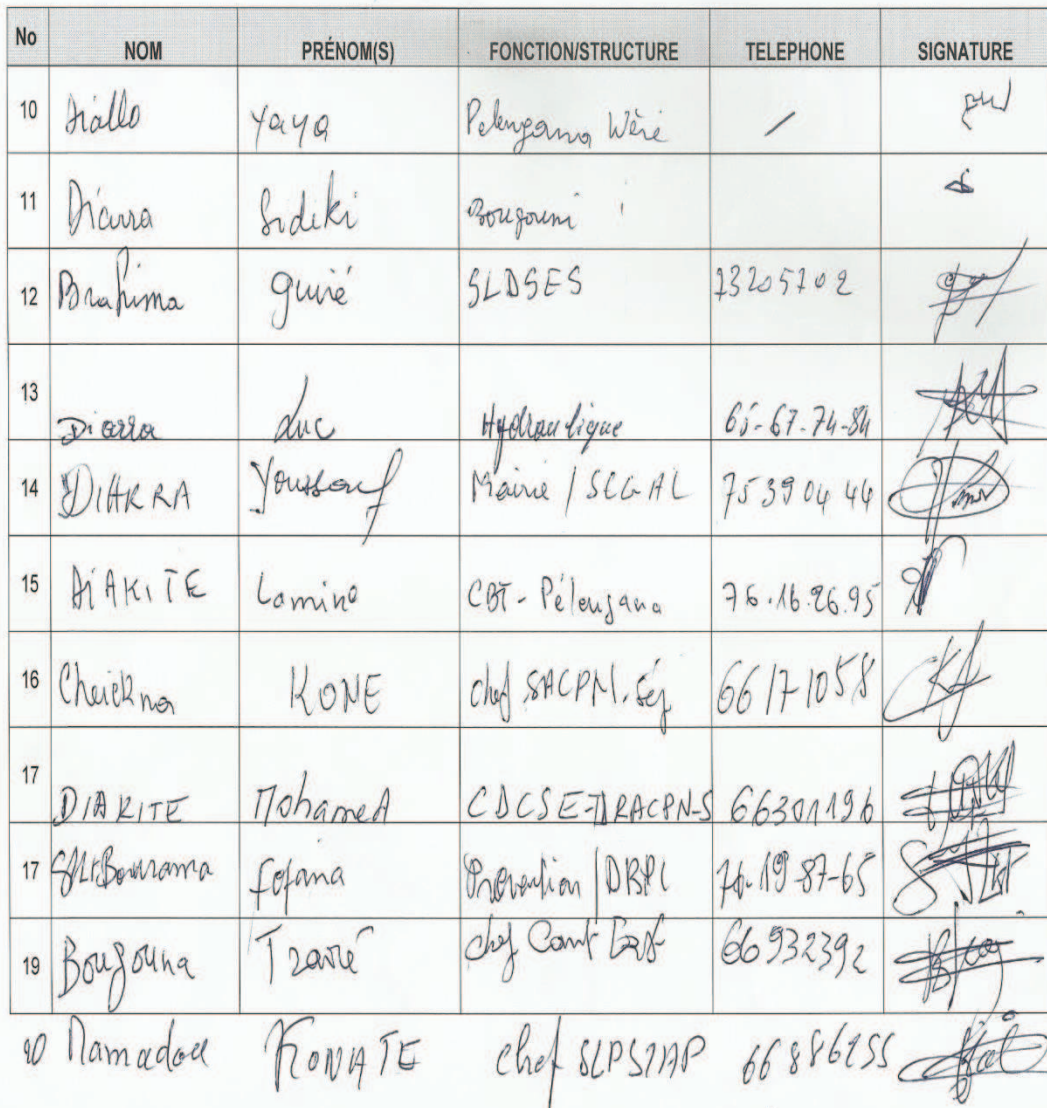 No NOM PRÉNOM(S) FONCTION/STRUCTURE TELEPHONE SIGNATURE
10 Diallo Yaya Pelengana Wèré /
11 Diarra Sidiki Bougouni
12 Brahima Guiré SLDSES 73205702
13 Diarra Luc Hydraulique 65-67-74-84
14 DIARRA Youssouf Mairie / SEGAL 75 39 04 44
15 DIAKITE Lamine CBT - Pélengana 76.16.26.95
16 Cheickna KONE chef SACPN. Ség 66171058
17 DIAKITE Mohamed CDCSE-DRACPN-S 66301196
17 Bourama Fofana Prevention /DRPC 76-19-87-65
19 Bougouna Traoré chef Cant 66932392
20 Mamadou KONATE chef 66886255